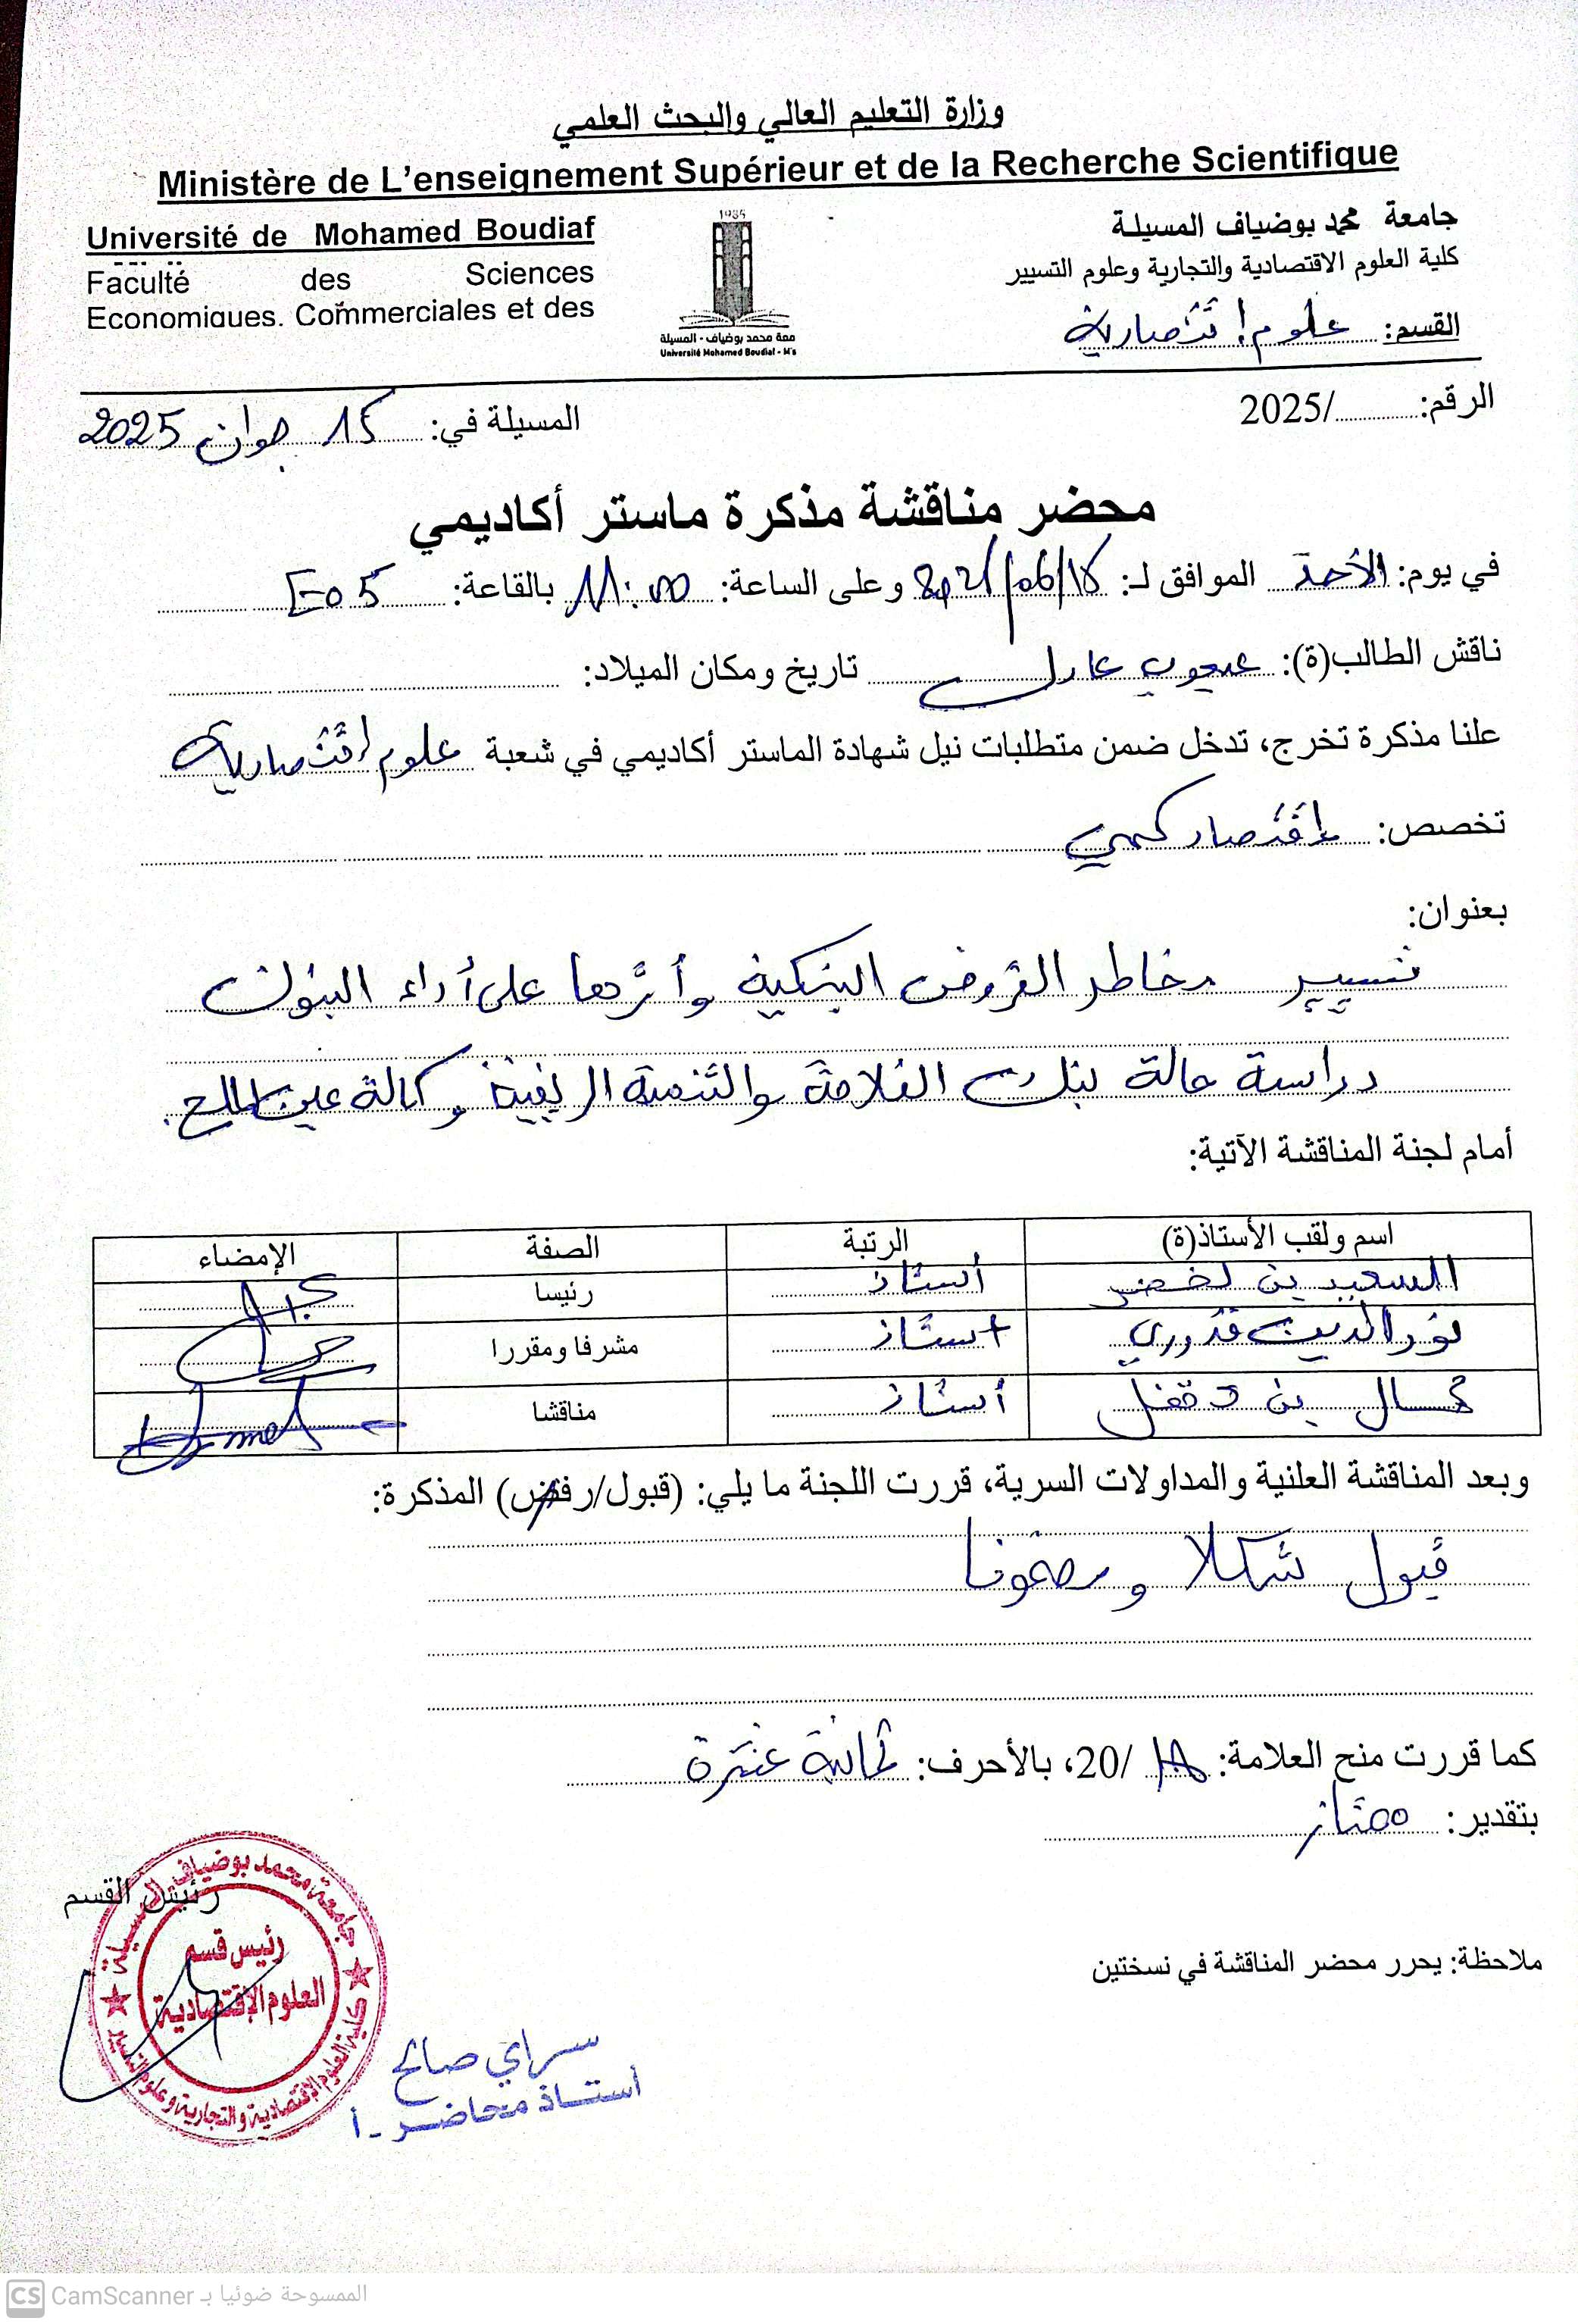 وزارة التعليم العالي والبحث العلمي
Ministère de L'enseignement Supérieur et de la Recherche Scientifique
Université de Mohamed Boudiaf
Faculté des Sciences
Economiques. Commerciales et des
1985
جامعة محمد بوضياف - المسيلة
Université Mohamed Boudiaf - M's
جامعة محمد بوضياف المسيلة
كلية العلوم الاقتصادية والتجارية وعلوم التسيير
القسم: علوم اقتصادية
الرقم: ........../2025
المسيلة في: 15 جوان 2025
محضر مناقشة مذكرة ماستر أكاديمي
في يوم: الأحد الموافق لـ: 2025/06/15 وعلى الساعة: 11:00 بالقاعة: E05
ناقش الطالب(ة): عيجوب عادل تاريخ ومكان الميلاد:
علنا مذكرة تخرج، تدخل ضمن متطلبات نيل شهادة الماستر أكاديمي في شعبة علوم اقتصادية
تخصص: إقتصاد كمي
بعنوان:
تسيير مخاطر القروض البنكية وأثرها على أداء البنوك
دراسة حالة بنك الفلاحة والتنمية الريفية وكالة عين الملح.
أمام لجنة المناقشة الآتية:
اسم ولقب الأستاذ(ة) الرتبة الصفة الإمضاء
السعيد بن لخضر أستاذ رئيسا
نور الدين قدوري أستاذ مشرفا ومقررا
كمال بن دقفل أستاذ مناقشا
وبعد المناقشة العلنية والمداولات السرية، قررت اللجنة ما يلي: (قبول/رفض) المذكرة:
قبول شكلا ومضمونا
كما قررت منح العلامة: 18 /20، بالأحرف: ثمانية عشرة
بتقدير: ممتاز
رئيس القسم
جامعة محمد بوضياف المسيلة
رئيس قسم
العلوم الإقتصادية
كلية العلوم الاقتصادية والتجارية وعلوم التسيير
ملاحظة: يحرر محضر المناقشة في نسختين
سراي صالح
أستاذ محاضر - أ
CS CamScanner الممسوحة ضوئيا بـ